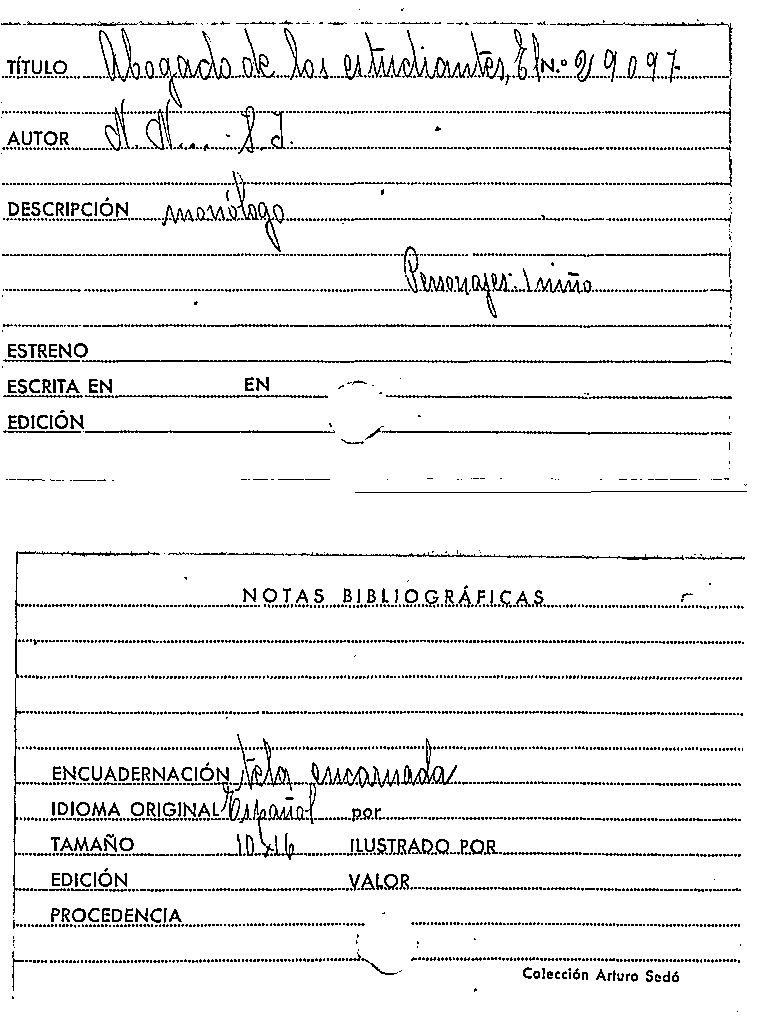 TÍTULO Abogado de los estudiantes, El N.º 29097
AUTOR N. N.... S.J.
DESCRIPCIÓN monólogo
Personajes: 1 niño
ESTRENO
ESCRITA EN EN
EDICIÓN
NOTAS BIBLIOGRÁFICAS
ENCUADERNACIÓN tela encarnada
IDIOMA ORIGINAL Español por
TAMAÑO 10x16 ILUSTRADO POR
EDICIÓN VALOR
PROCEDENCIA
Colección Arturo Sedó